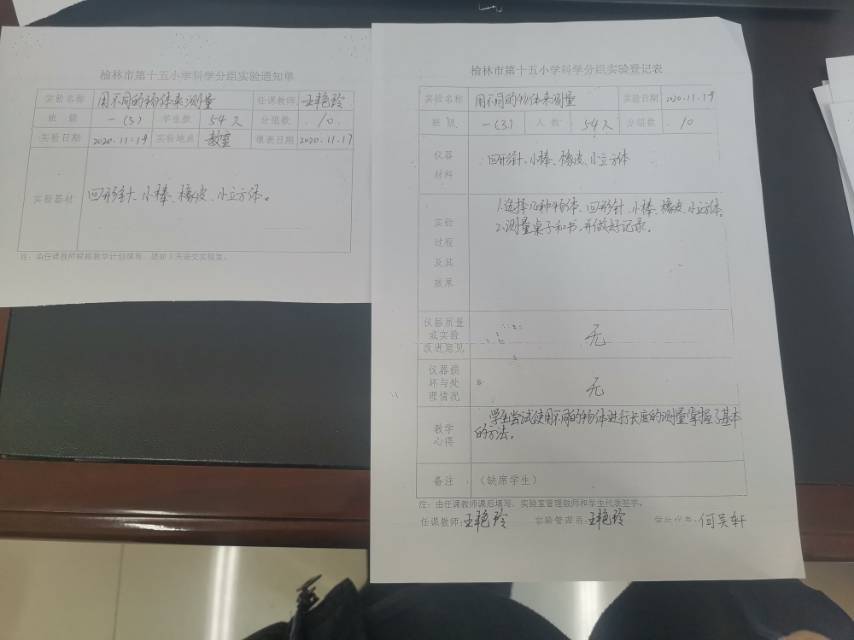 榆林市第十五小学科学分组实验通知单
实验名称 用不同的物体来测量 任课教师 王艳玲
班级 一(3) 学生数 54人 分组数 10
实验日期 2020.11.19 实验地点 教室 填表日期 2020.11.17
实验器材 回形针、小棒、橡皮、小立方体。
注:由任课教师根据教学计划填写,提前1天送交实验室。
榆林市第十五小学科学分组实验登记表
实验名称 用不同的物体来测量 实验日期 2020.11.19
班级 一(3) 人数 54人 分组数 10
仪器
材料
回形针、小棒、橡皮、小立方体
实验
过程
及其
效果
1.选择几种物体、回形针、小棒、橡皮、小立方体、
2.测量桌子和书,并做好记录。
仪器质量
或实验
改进意见
无
仪器损
坏与处
理情况
无
教学
心得
学生尝试使用不同的物体进行长度的测量掌握了基本
的方法。
备注 (缺席学生)
注:由任课教师课后填写,实验室管理教师和学生代表签字。
任课教师:王艳玲 实验管理员:王艳玲 学生代表:何昊轩